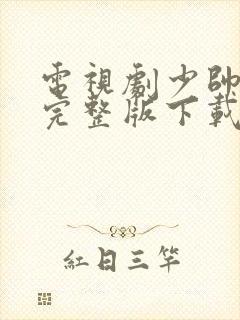 電視劇少帥
完整版下載
紅日三竿